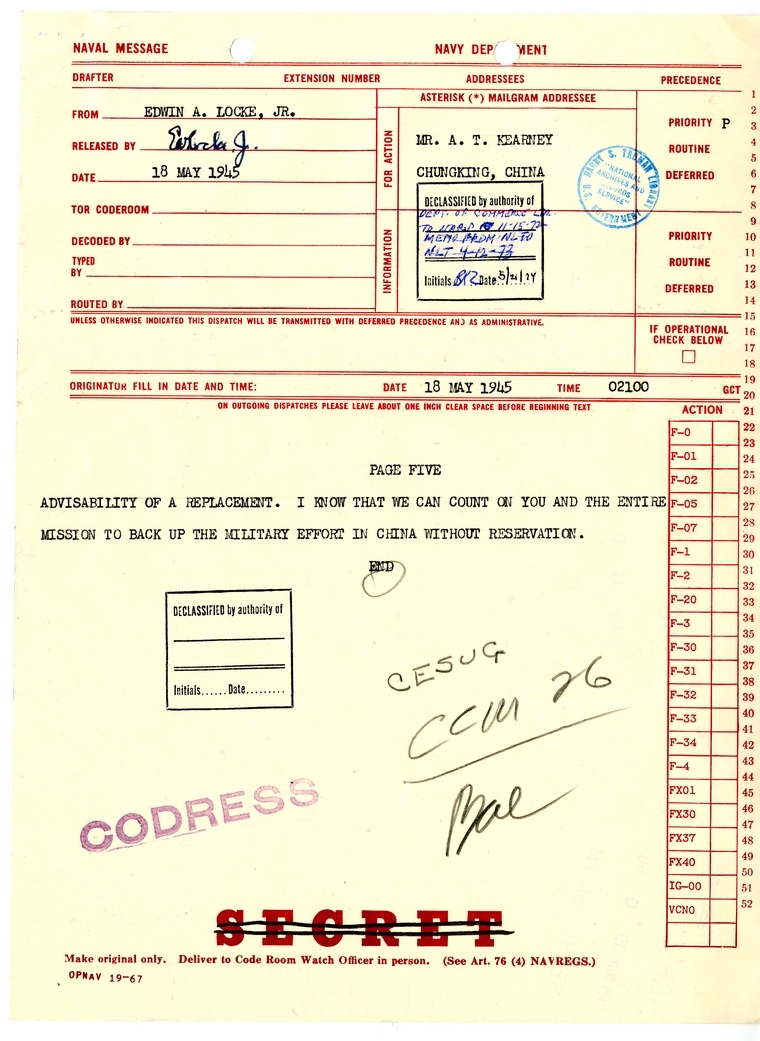 NAVAL MESSAGE NAVY DEP MENT
DRAFTER EXTENSION NUMBER ADDRESSEES PRECEDENCE
FROM EDWIN A. LOCKE, JR.
RELEASED BY
DATE 18 MAY 1945
TOR CODEROOM
DECODED BY
TYPED
BY
ROUTED BY
ASTERISK (*) MAILGRAM ADDRESSEE
FOR ACTION
MR. A. T. KEARNEY
CHUNGKING, CHINA
INFORMATION
DECLASSIFIED by authority of
DEPT. OF COMMERCE LTR.
TO NARS 11-15-72
MEMO FROM NL TO
NLT 4-12-73
Initials Date 5/21/74
U.S. HARRY S. TRUMAN LIBRARY
"NATIONAL
ARCHIVES AND
RECORDS
SERVICE"
GOVERNMENT
PRIORITY P
ROUTINE
DEFERRED
PRIORITY
ROUTINE
DEFERRED
UNLESS OTHERWISE INDICATED THIS DISPATCH WILL BE TRANSMITTED WITH DEFERRED PRECEDENCE AND AS ADMINISTRATIVE.
IF OPERATIONAL
CHECK BELOW
ORIGINATOR FILL IN DATE AND TIME: DATE 18 MAY 1945 TIME 02100 GCT
ON OUTGOING DISPATCHES PLEASE LEAVE ABOUT ONE INCH CLEAR SPACE BEFORE BEGINNING TEXT
ACTION
PAGE FIVE
ADVISABILITY OF A REPLACEMENT. I KNOW THAT WE CAN COUNT ON YOU AND THE ENTIRE
MISSION TO BACK UP THE MILITARY EFFORT IN CHINA WITHOUT RESERVATION.
END
DECLASSIFIED by authority of
Initials...... Date.........
CESUG
CCM 26
CODRESS
F-0
F-01
F-02
F-05
F-07
F-1
F-2
F-20
F-3
F-30
F-31
F-32
F-33
F-34
F-4
FX01
FX30
FX37
FX40
IG-00
VCNO
1
2
3
4
5
6
7
8
9
10
11
12
13
14
15
16
17
18
19
20
21
22
23
24
25
26
27
28
29
30
31
32
33
34
35
36
37
38
39
40
41
42
43
44
45
46
47
48
49
50
51
52
SECRET
Make original only. Deliver to Code Room Watch Officer in person. (See Art. 76 (4) NAVREGS.)
OPNAV 19-67